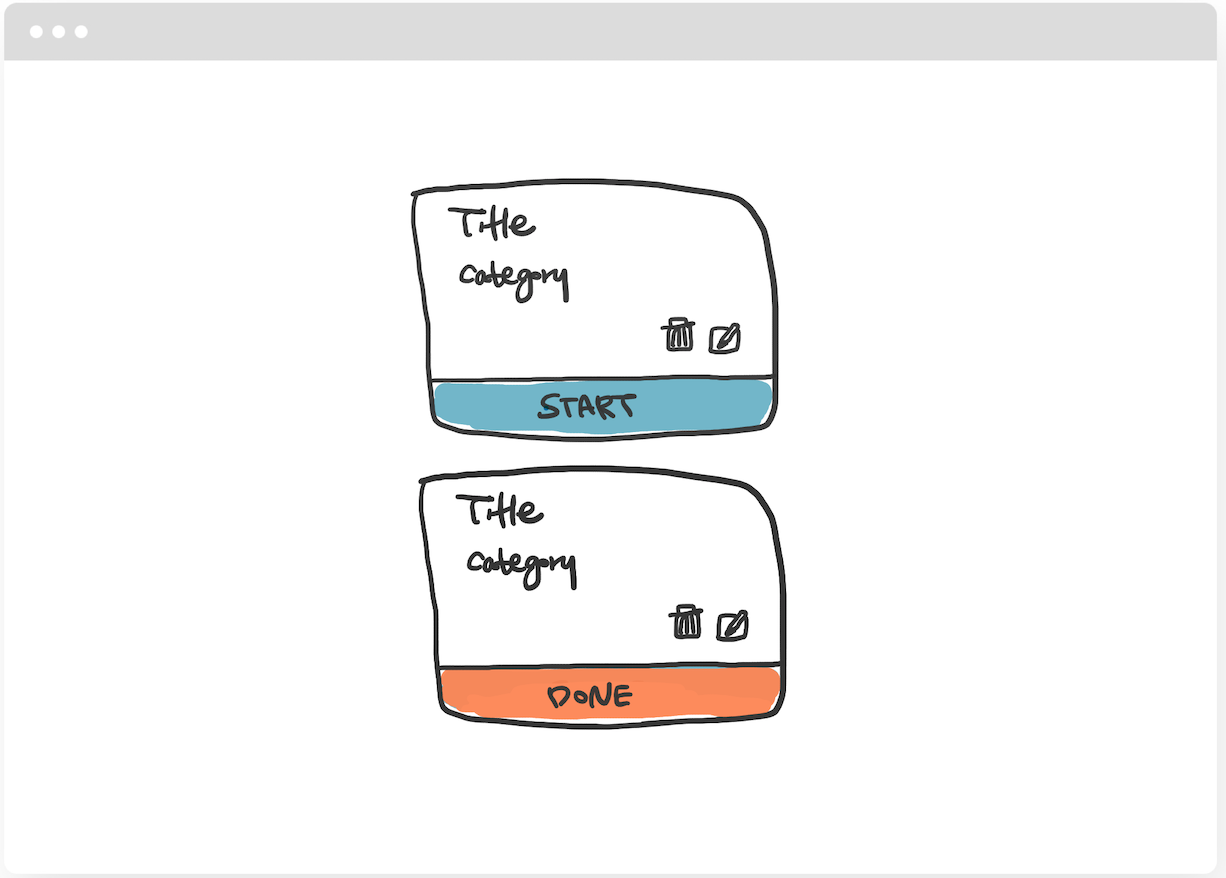 Title
category
START
Title
category
DONE